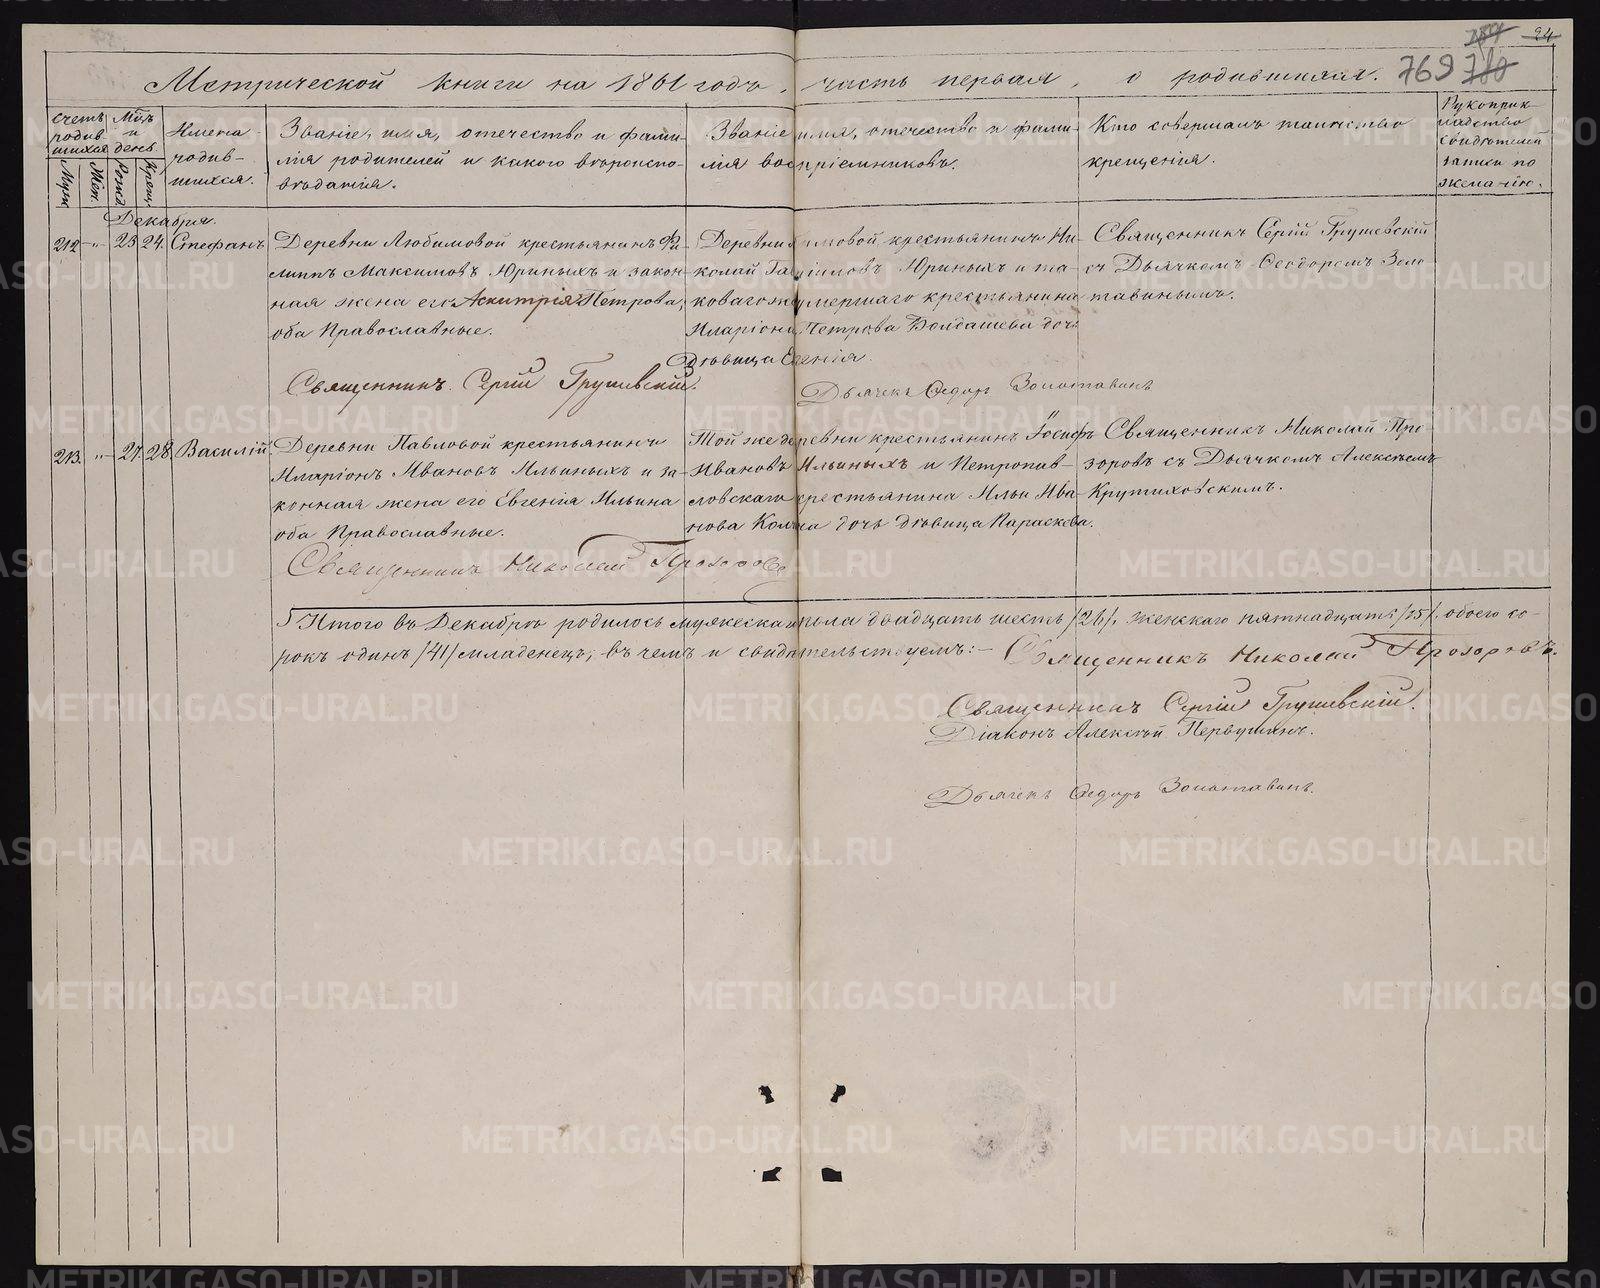 769
24
Метрической книги на 1861 годъ, часть первая, о родившихся.
Счетъ родив-шихся
Муж.
Жен.
М-цъ и день.
Рожд.
Крещ.
Имена родив-шихся.
Званіе, имя, отечество и фами-
лія родителей и какого вѣроиспо-
вѣданія.
Званіе имя, отечество и фами-
лія воспріемниковъ.
Кто совершалъ таинство
крещенія.
Рукоприк-
ладство
свидѣтелей
записи по
желанію.
Декабря.
212 -„- 23 24. Стефанъ
Деревни Любимовой крестьянинъ Фи-
липпъ Максимовъ Юриныхъ и закон-
ная жена его Петрова,
оба Православные.
Деревни крестьянинъ Ни-
колай Юриныхъ и та-
коваго же умершаго крестьянина
Иларіона Петрова дочь
Дѣвица
Священникъ Сергій Грушевскій
съ Дьячкомъ Ѳеодоромъ Золо-
тавинымъ.
Священникъ Сергій Грушевскій.
Дьячекъ Ѳедоръ Золотавинъ
213. „- 27. 28. Василій
Деревни Павловой крестьянинъ
Иларіонъ Ивановъ Ильиныхъ и за-
конная жена его Евгенія Ильина
оба Православные.
Той же деревни крестьянинъ Іосифъ
Ивановъ Ильиныхъ и Петропав-
ловскаго крестьянина Ильи Ива-
нова дочь дѣвица Параскева.
Священникъ Николай Про-
зоровъ съ Дьячкомъ Алексѣемъ
Крутиховскимъ.
Священникъ Николай Прозоровъ
Итого въ Декабрѣ родилось мужеска пола двадцать шесть /26/, женскаго пятнадцать /15/, обоего со-
рокъ одинъ /41/ младенецъ, въ чемъ и свидѣтельствуемъ: - Священникъ Николай Прозоровъ.
Священникъ Сергій Грушевскій.
Діаконъ Алексѣй Первушинъ.
Дьячекъ Ѳедоръ Золотавинъ.
METRIKI.GASO-URAL.RU